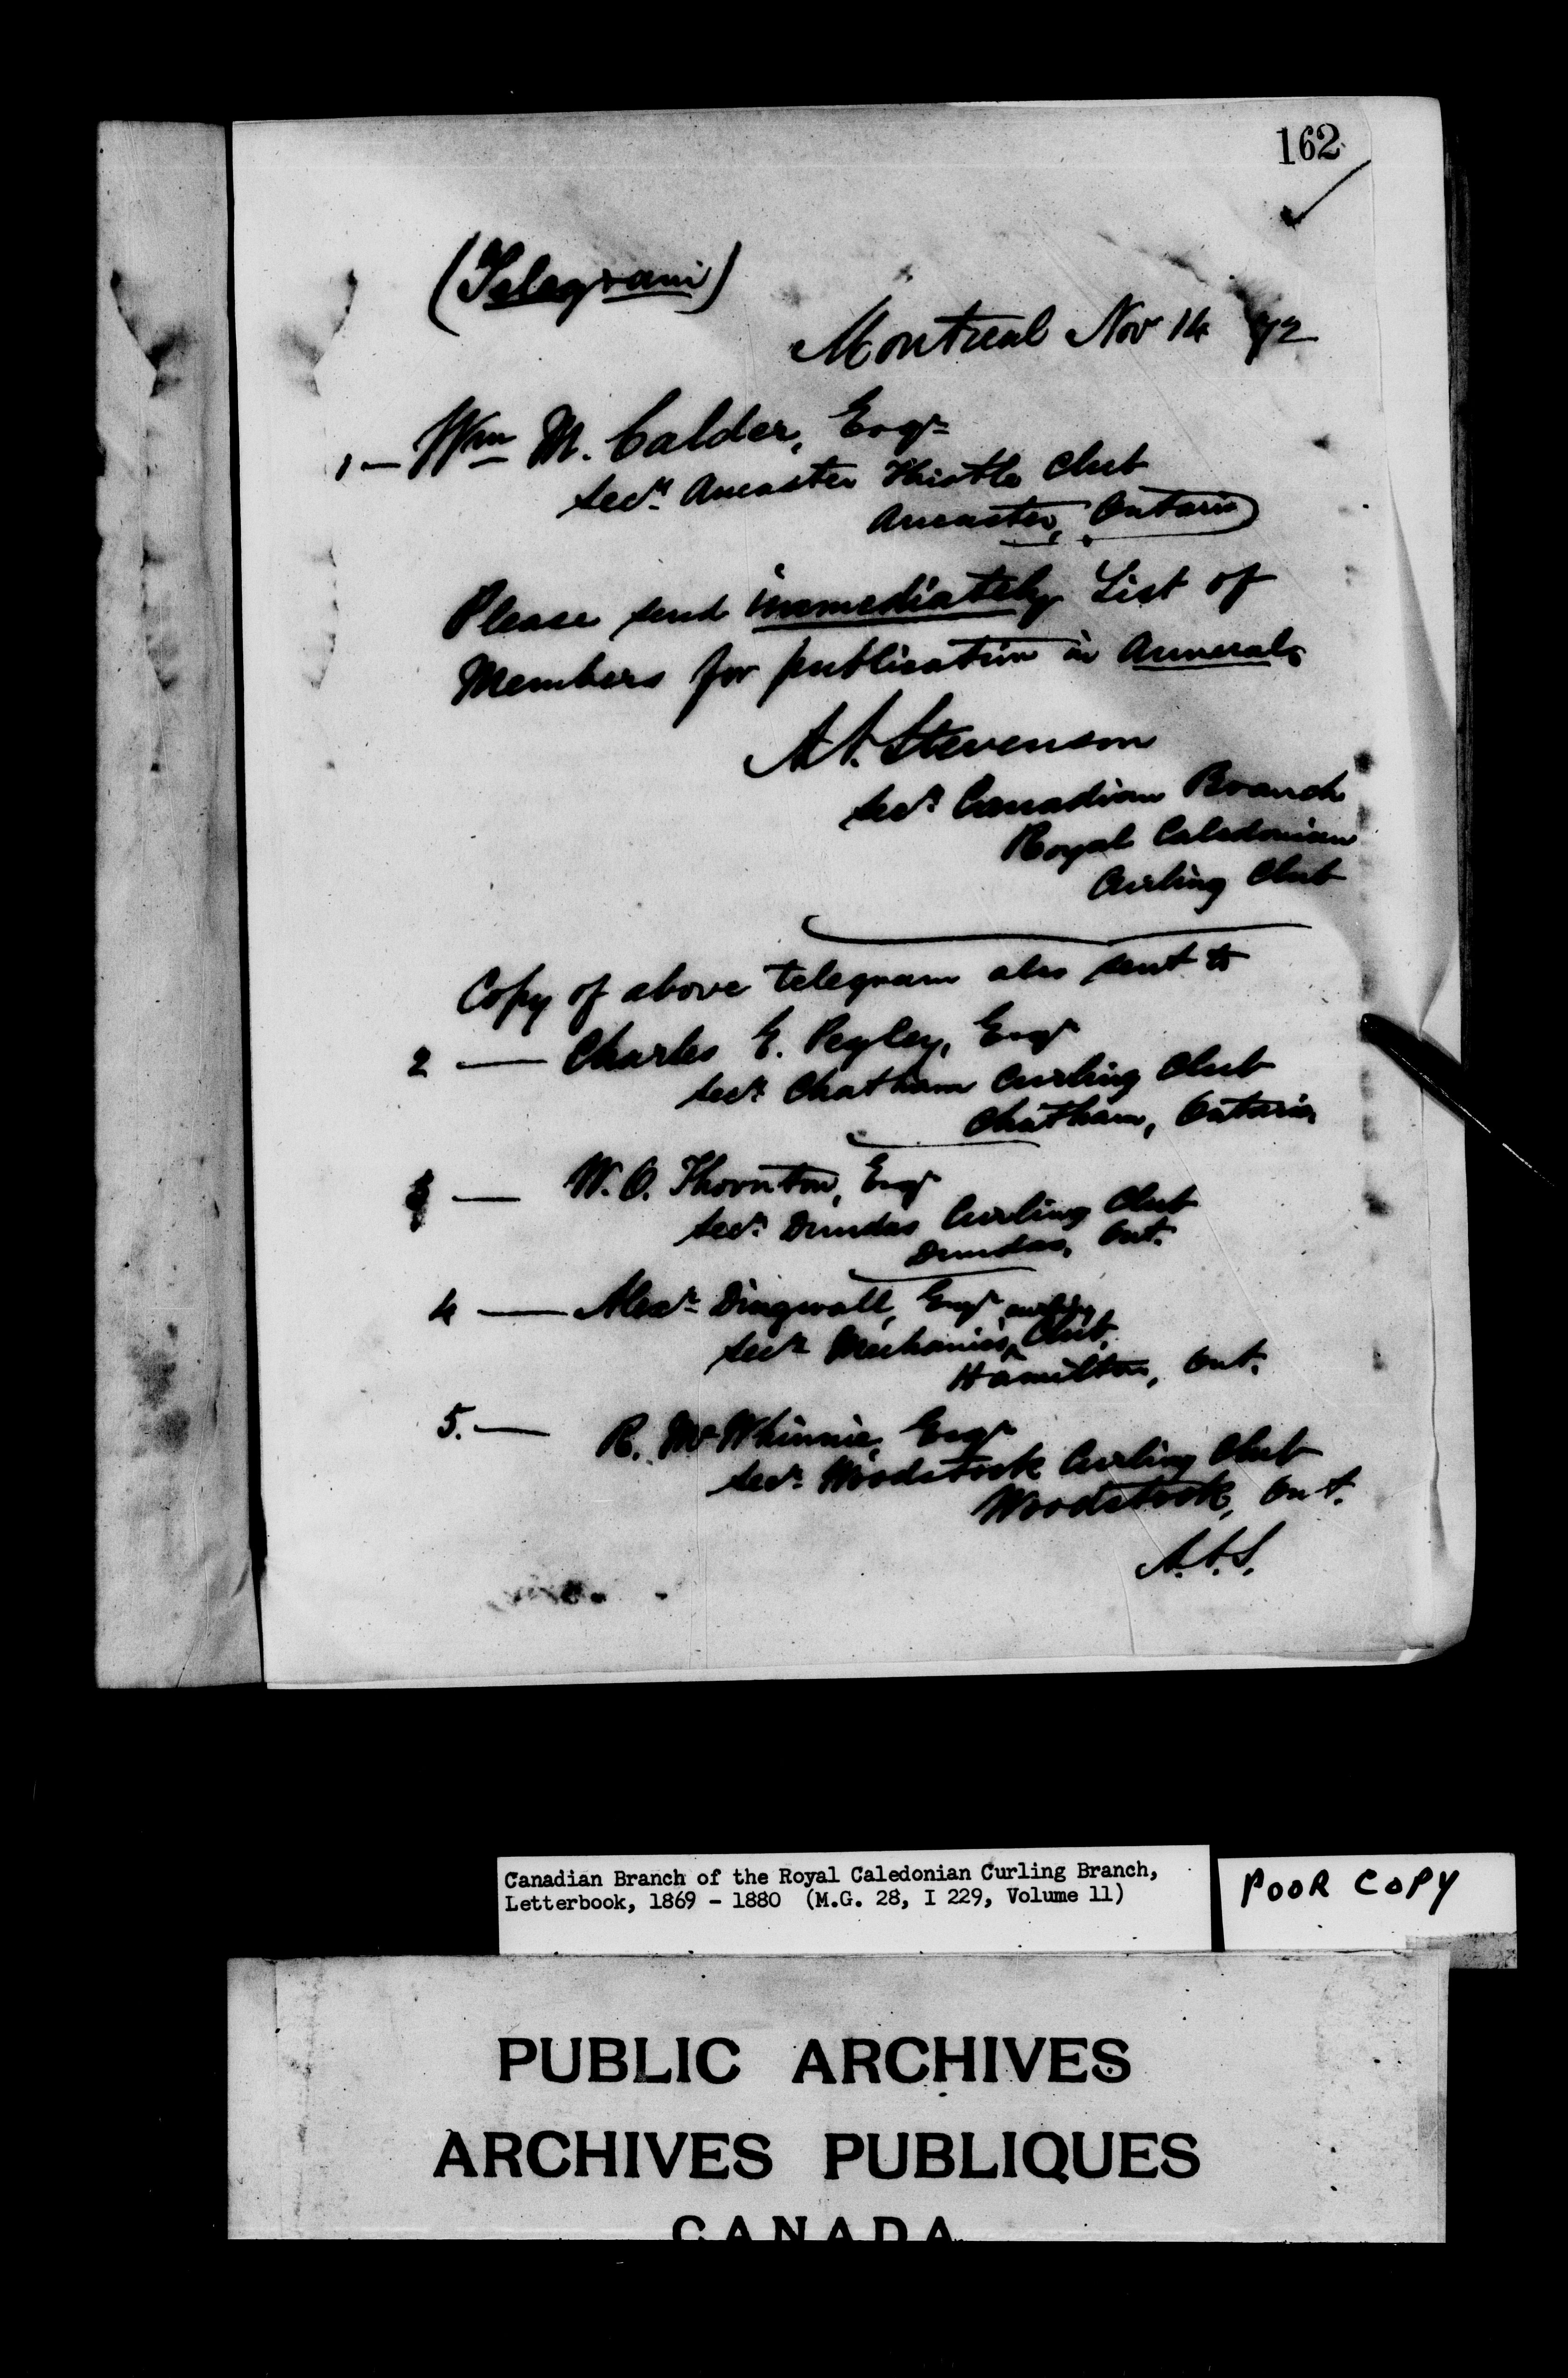 162
(Telegram)
Montreal Nov 14 72
1 — Wm M. Calder, Esqr
Secy Ancaster Thistle Club
Ancaster, Ontario
Please send immediately List of
Members for publication in Annual.
A. A. Stevenson
Secy Canadian Branch
Royal Caledonian
Curling Club
Copy of above telegram also sent to
2 — Charles E. Pegley, Esqr
Secy Chatham Curling Club
Chatham, Ontario
3 — W. O. Thornton, Esqr
Secy Dundas Curling Club
Dundas, Ont.
4 — Alexr Dingwall, Esqr
Secy Mechanics curling Club,
Hamilton, Ont.
5. — R. McWhinnie, Esqr
Secy Woodstock Curling Club
Woodstock, Ont.
A.A.S.
Canadian Branch of the Royal Caledonian Curling Branch,
Letterbook, 1869 - 1880 (M.G. 28, I 229, Volume 11)
POOR COPY
PUBLIC ARCHIVES
ARCHIVES PUBLIQUES
CANADA